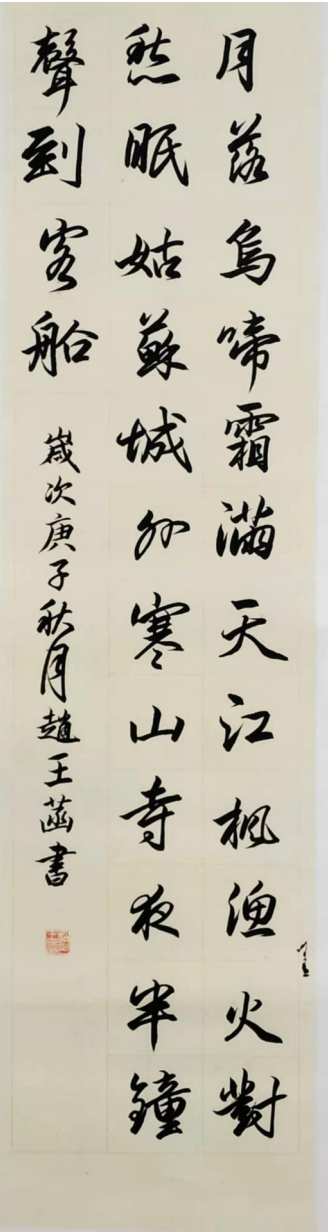 月落烏啼霜滿天江楓漁火對
愁眠姑蘇城外寒山寺夜半鐘
聲到客船
歲次庚子秋月趙王菡書